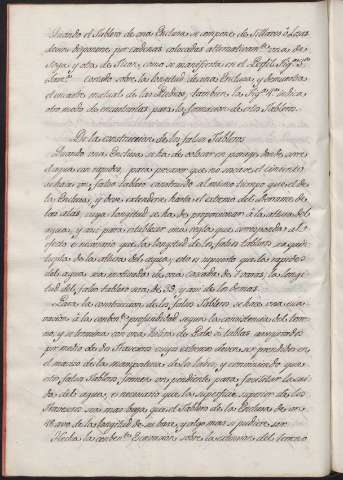 Quando el Tablero de una Enclusa se compone de Sillares ó Losas
deven disponerse por cadenas colocadas alternativam.te una de
soga y otra de tison, como se manifiesta en el Perfil Fig.a 3.a
cortado sobre la longitud de una Enclusa, y demuestra
el encastre mutual de las Piedras; tambien la Fig.a 4.a indica
otro modo de encastrarlas para la formacion de estos Tableros.
De la construccion de los falsos Tableros
Quando una Enclusa se ha de colocar en parage donde corre el
agua con rapidez, para precaver que no socave el cimiento
se hará un falso tablero construido al mismo tiempo que el de
la Enclusa, y deve extenderse hasta el extremo del Derrame de
las alas, cuya longitud se ha de proporcionar á la altura del
agua, y asi para establecer una regla que corresponda al
efecto es necesario que la longitud de los falsos tableros sea quin-
tupla de la altura del agua; esto es supuesto que la rapidez
del agua sea motivada de una caida de 7 varas; la longi-
tud del falso tablero será de 35, y asi de los demas.
Para la construccion de los falsos Tableros se hará una esca-
vacion á la comben.te profundidad segun la consistencia del terre-
no, y se termina con una hilera de Pilotes ó tablas, asegurados
por medio de dos Travesaños cuyos extremos deven ser prendidos en
el macizo de la mamposteria de los lados, y combiniendo que
este falso Tablero, forme un pendiente para facilitar la sali-
da del agua, es necesario que la superficie superior de los
Travesaños sea mas baja que el Tablero de la Enclusa de un
18 avo de la longitud de su base, y algo mas si pudiere ser.
Hecha la comben.te Escavacion sobre la extension del terreno